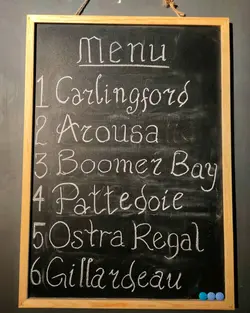 Menu
1 Carlingford
2 Arousa
3 Boomer Bay
4 Pattedoie
5 Ostra Regal
6 Gillardeau